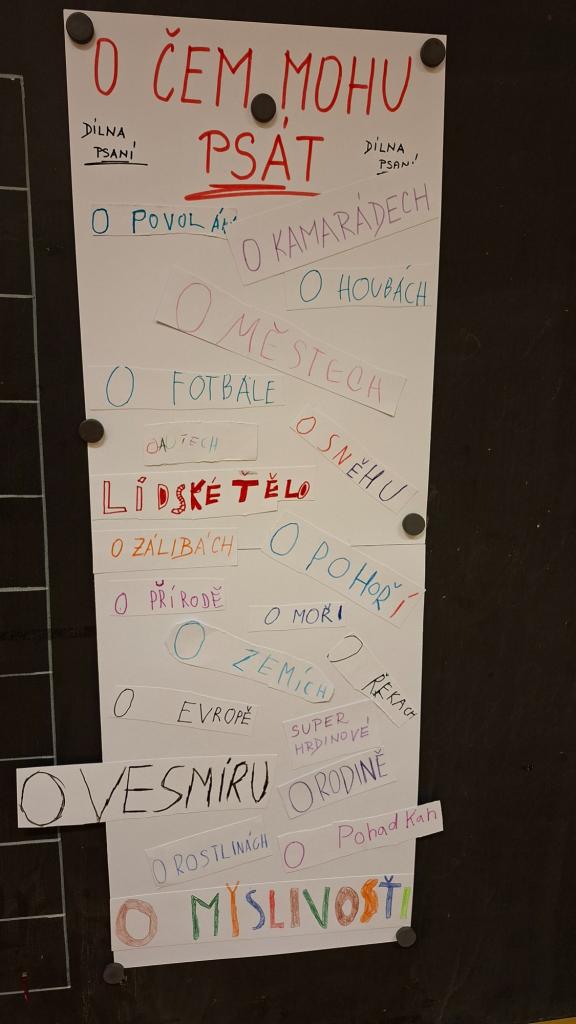 O ČEM MOHU
PSÁT
DÍLNA
PSANÍ
DÍLNA
PSANÍ
O POVOLÁNÍ
O KAMARÁDECH
O HOUBÁCH
O MĚSTECH
O FOTBALE
O AUTECH
O SNĚHU
LÍDSKÉ TĚLO
O ZÁLIBÁCH
O POHOŘÍ
O PŘÍRODĚ
O MOŘI
O ZEMÍCH
O ŘEKACH
O EVROPĚ
SUPER
HRDINOVÉ
O VESMÍRU
O RODINĚ
O ROSTLINÁCH
O Pohadkah
O MYSLIVOSŤI